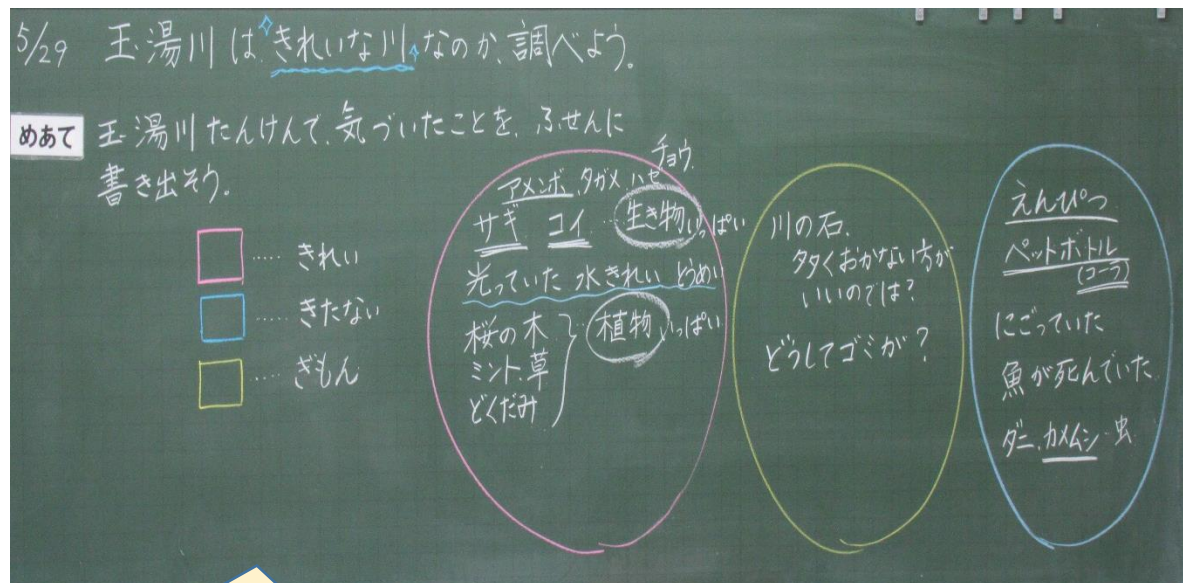 5/29 玉湯川は きれいな川 なのか、調べよう。
めあて 玉湯川たんけんで、気づいたことを、ふせんに
書き出そう。
……きれい
……きたない
……ぎもん
チョウ
アメンボ、タガメ、ハゼ
サギ コイ …生き物いっぱい
光っていた 水きれい とうめい
桜の木
ミント、草
どくだみ
…植物いっぱい
川の石、
多くおかない方が
いいのでは?
どうしてゴミが?
えんぴつ
ペットボトル
(コーラ)
にごっていた
魚が死んでいた
ダニ、カメムシ・虫